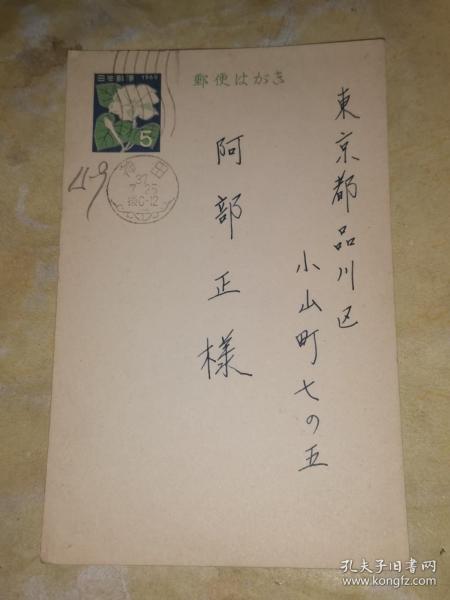 郵便はがき
日本郵便 1960
5
神田
37
7 25
後0-12
49
東京都品川区
小山町七の五
阿部正様
孔夫子旧书网
www.kongfz.com